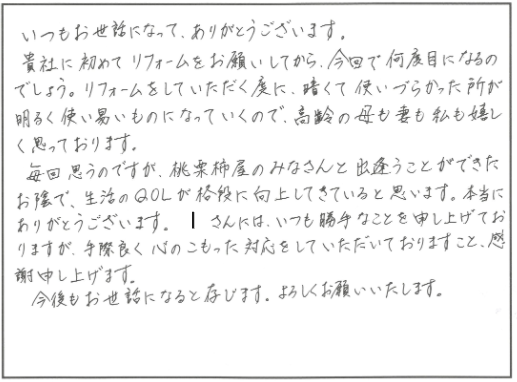 いつもお世話になって、ありがとうございます。
貴社に初めてリフォームをお願いしてから、今回で何度目になるの
でしょう。リフォームをしていただく度に、暗くて使いづらかった所が
明るく使い易いものになっていくので、高齢の母も妻も私も嬉し
く思っております。
毎回思うのですが、桃栗柿屋のみなさんと出逢うことができた
お陰で、生活のQOLが格段に向上してきていると思います。本当に
ありがとうございます。 さんには、いつも勝手なことを申し上げてお
りますが、手際良く心のこもった対応をしていただいておりますこと、感
謝申し上げます。
今後もお世話になると存じます。よろしくお願いいたします。